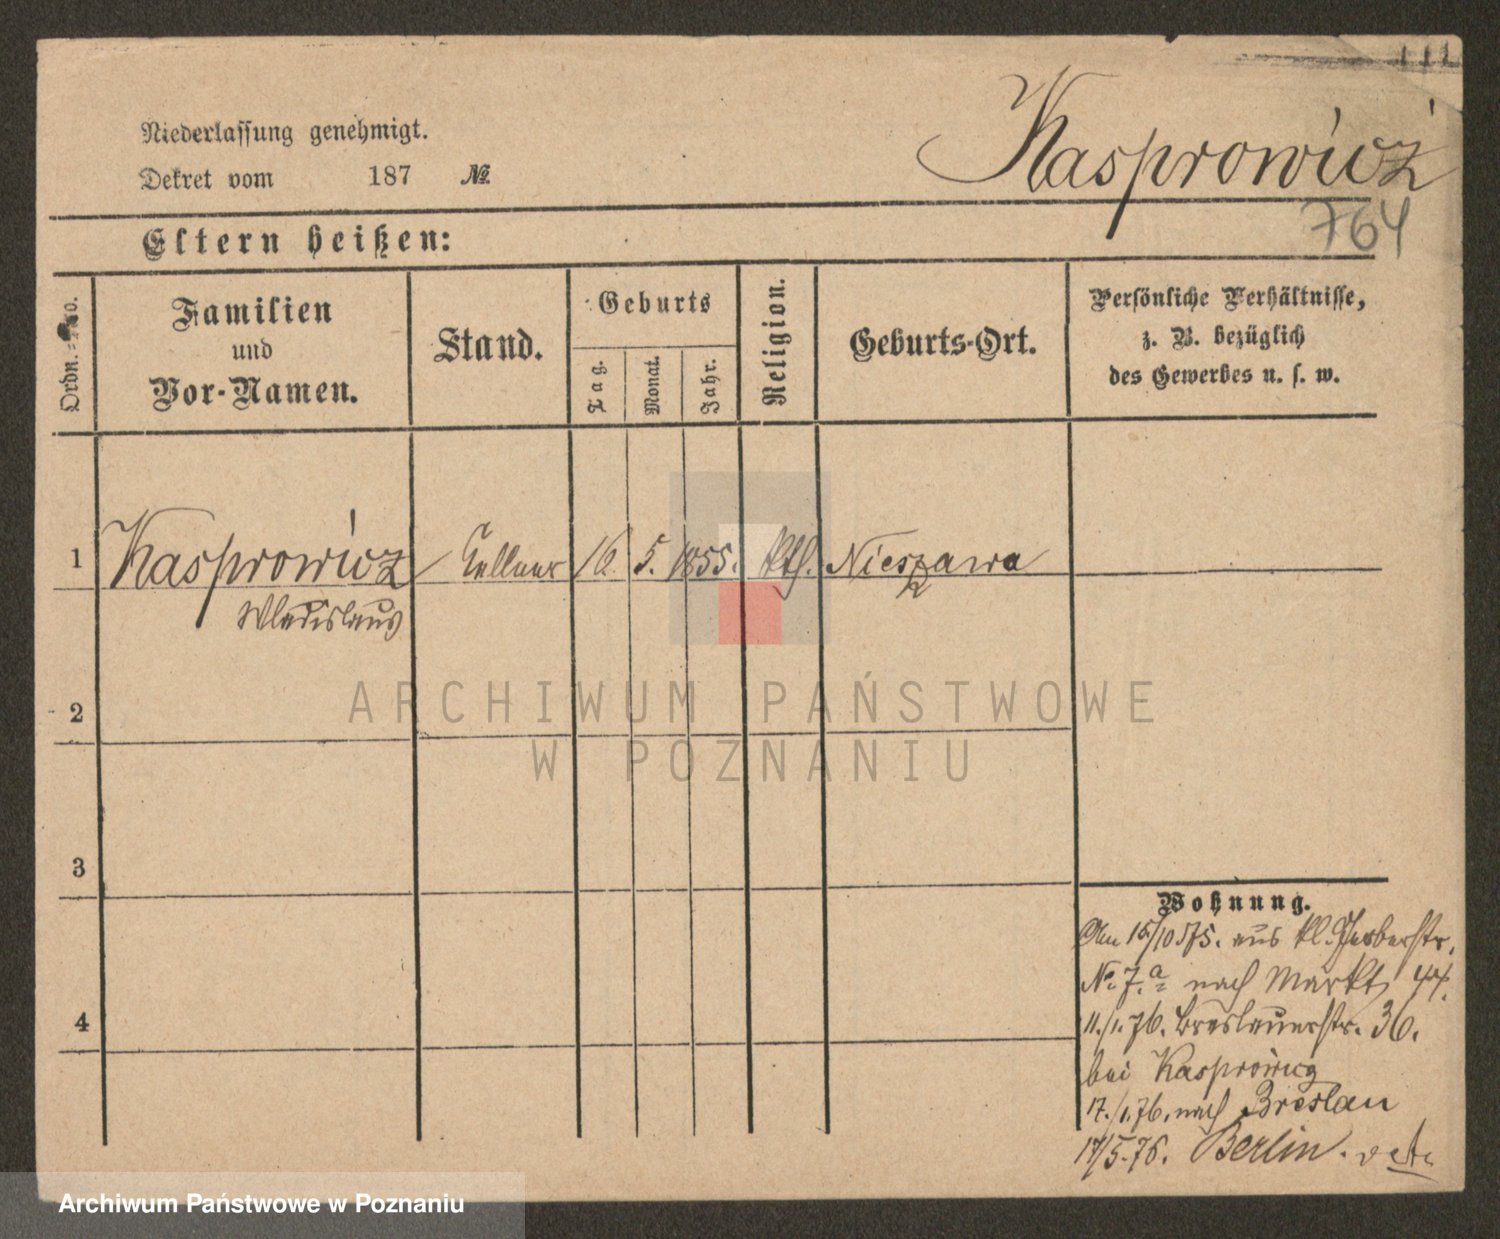 Niederlassung genehmigt.
Dekret vom 187 №
Kasprowicz
764
Eltern heißen:
Ordn.-No.
Familien
und
Vor-Namen.
Stand.
Geburts
Tag.
Monat.
Jahr.
Religion.
Geburts-Ort.
Persönliche Verhältnisse,
z. B. bezüglich
des Gewerbes u. s. w.
1 Kasprowicz Kellner 16. 5. 1855. kth. Nieszawa
Wladislaus
2
3
4
Wohnung.
Am 15/10 75. aus kl. Gerberstr.
№ 7.a nach Markt 44.
11./1. 76. Breslauerstr. 36.
bei Kasprowicz
17./1. 76. nach Breslau
17/5. 76. Berlin.
ARCHIWUM PAŃSTWOWE
W POZNANIU
Archiwum Państwowe w Poznaniu